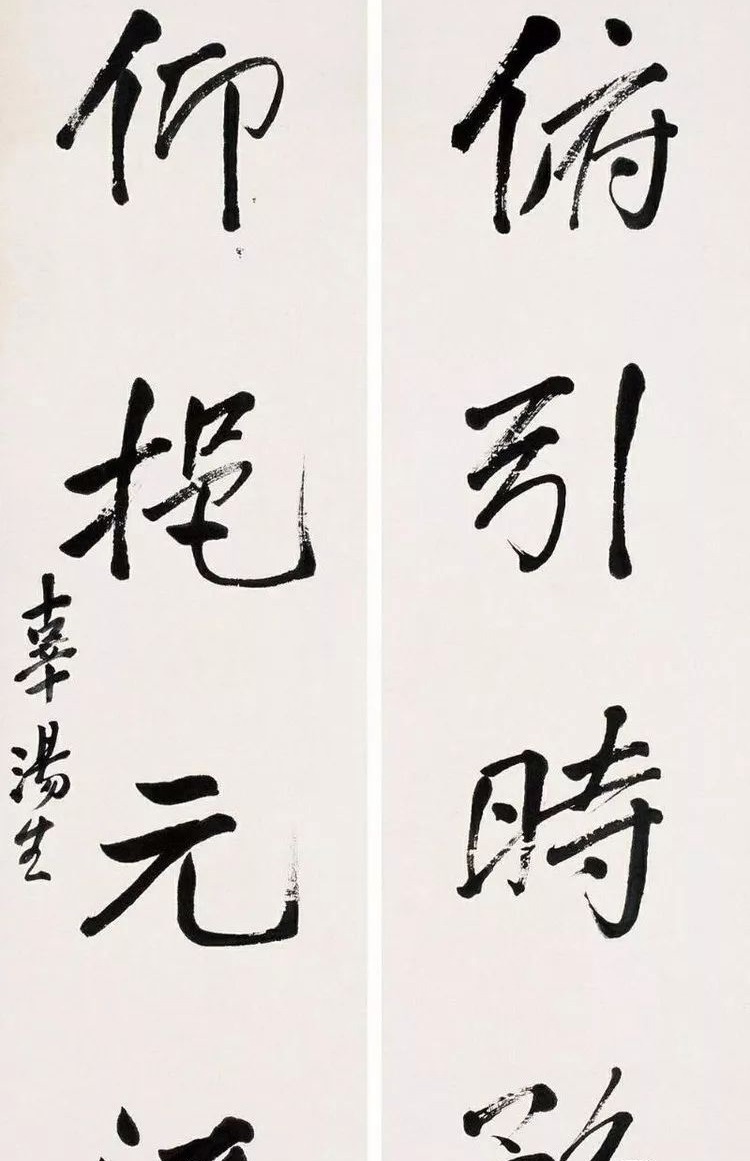 俯引時
仰挹元
辜湯生